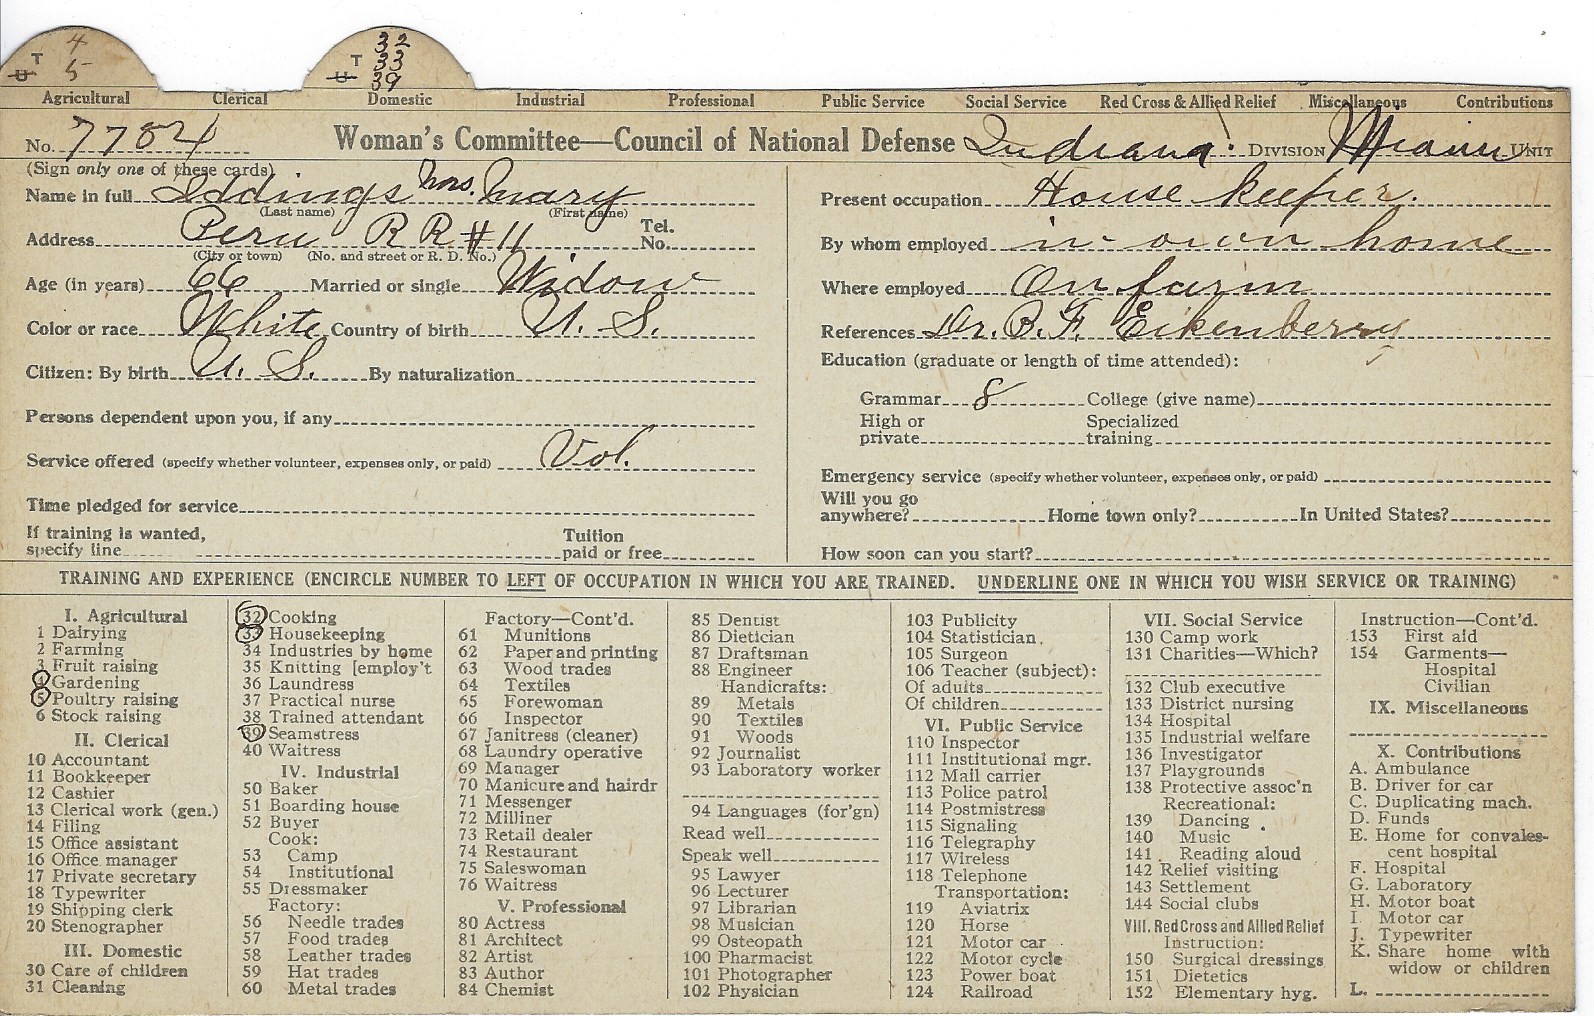 4 32
T T 33
U 5 U 39
Agricultural Clerical Domestic Industrial Professional Public Service Social Service Red Cross & Allied Relief Miscellaneous Contributions
No. 7784 Woman's Committee—Council of National Defense Indiana DIVISION Miami UNIT
(Sign only one of these cards)
Name in full Iddings Mrs. Mary
(Last name) (First name)
Address Peru RR #11 Tel. No.
(City or town) (No. and street or R. D. No.)
Age (in years) 66 Married or single Widow
Color or race White Country of birth U. S.
Citizen: By birth U. S. By naturalization
Persons dependent upon you, if any
Service offered (specify whether volunteer, expenses only, or paid) Vol.
Time pledged for service
If training is wanted,
specify line Tuition paid or free
Present occupation House keeper.
By whom employed in own home
Where employed On farm
References Dr. B. F. Eikenberry
Education (graduate or length of time attended):
Grammar 8 College (give name)
High or private Specialized training
Emergency service (specify whether volunteer, expenses only, or paid)
Will you go
anywhere? Home town only? In United States?
How soon can you start?
TRAINING AND EXPERIENCE (ENCIRCLE NUMBER TO LEFT OF OCCUPATION IN WHICH YOU ARE TRAINED. UNDERLINE ONE IN WHICH YOU WISH SERVICE OR TRAINING)
I. Agricultural
1 Dairying
2 Farming
3 Fruit raising
4 Gardening
5 Poultry raising
6 Stock raising
II. Clerical
10 Accountant
11 Bookkeeper
12 Cashier
13 Clerical work (gen.)
14 Filing
15 Office assistant
16 Office manager
17 Private secretary
18 Typewriter
19 Shipping clerk
20 Stenographer
III. Domestic
30 Care of children
31 Cleaning
32 Cooking
33 Housekeeping
34 Industries by home
35 Knitting [employ't
36 Laundress
37 Practical nurse
38 Trained attendant
39 Seamstress
40 Waitress
IV. Industrial
50 Baker
51 Boarding house
52 Buyer
Cook:
53 Camp
54 Institutional
55 Dressmaker
Factory:
56 Needle trades
57 Food trades
58 Leather trades
59 Hat trades
60 Metal trades
Factory—Cont'd.
61 Munitions
62 Paper and printing
63 Wood trades
64 Textiles
65 Forewoman
66 Inspector
67 Janitress (cleaner)
68 Laundry operative
69 Manager
70 Manicure and hairdr
71 Messenger
72 Milliner
73 Retail dealer
74 Restaurant
75 Saleswoman
76 Waitress
V. Professional
80 Actress
81 Architect
82 Artist
83 Author
84 Chemist
85 Dentist
86 Dietician
87 Draftsman
88 Engineer
Handicrafts:
89 Metals
90 Textiles
91 Woods
92 Journalist
93 Laboratory worker
94 Languages (for'gn)
Read well
Speak well
95 Lawyer
96 Lecturer
97 Librarian
98 Musician
99 Osteopath
100 Pharmacist
101 Photographer
102 Physician
103 Publicity
104 Statistician
105 Surgeon
106 Teacher (subject):
Of adults
Of children
VI. Public Service
110 Inspector
111 Institutional mgr.
112 Mail carrier
113 Police patrol
114 Postmistress
115 Signaling
116 Telegraphy
117 Wireless
118 Telephone
Transportation:
119 Aviatrix
120 Horse
121 Motor car
122 Motor cycle
123 Power boat
124 Railroad
VII. Social Service
130 Camp work
131 Charities—Which?
132 Club executive
133 District nursing
134 Hospital
135 Industrial welfare
136 Investigator
137 Playgrounds
138 Protective assoc'n
Recreational:
139 Dancing
140 Music
141 Reading aloud
142 Relief visiting
143 Settlement
144 Social clubs
VIII. Red Cross and Allied Relief
Instruction:
150 Surgical dressings
151 Dietetics
152 Elementary hyg.
Instruction—Cont'd.
153 First aid
154 Garments—
Hospital
Civilian
IX. Miscellaneous
X. Contributions
A. Ambulance
B. Driver for car
C. Duplicating mach.
D. Funds
E. Home for convales-
cent hospital
F. Hospital
G. Laboratory
H. Motor boat
I. Motor car
J. Typewriter
K. Share home with
widow or children
L.